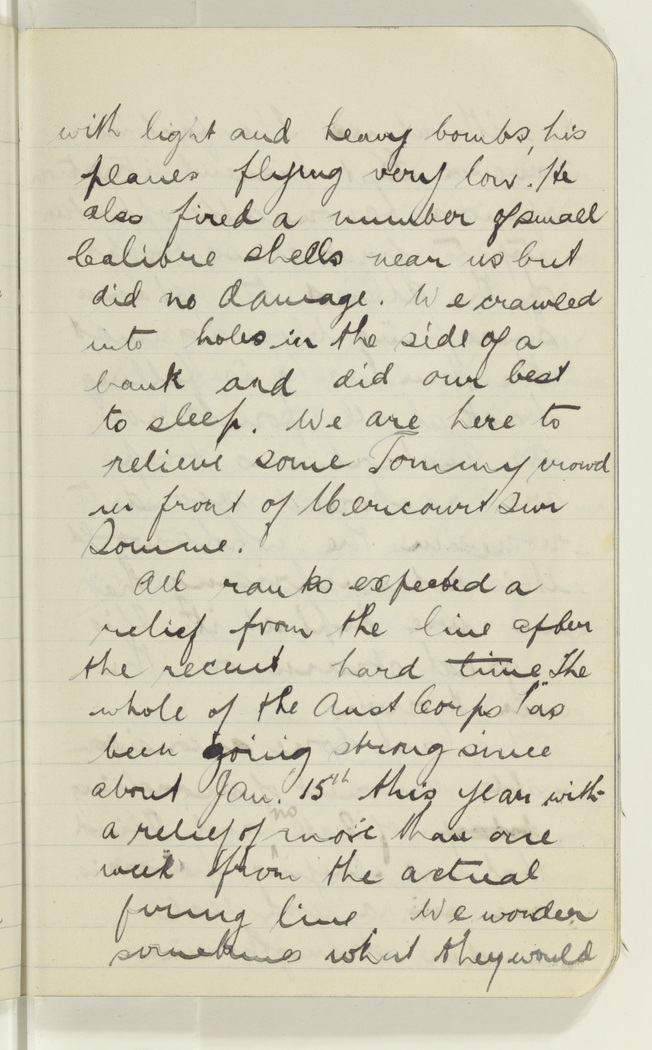 with light and heavy bombs, his
planes flying very low. He
also fired a number of small
calibre shells near us but
did no damage. We crawled
into holes in the side of a
bank and did our best
to sleep. We are here to
relieve some Tommy crowd
in front of Mericourt Sur
Somme.
All ranks expected a
relief from the line after
the recent hard time The
whole of the Aust Corps has
been going strong since
about Jan. 15th this year with
a relief of no more than one
week from the actual
firing line We wonder
sometimes what they would